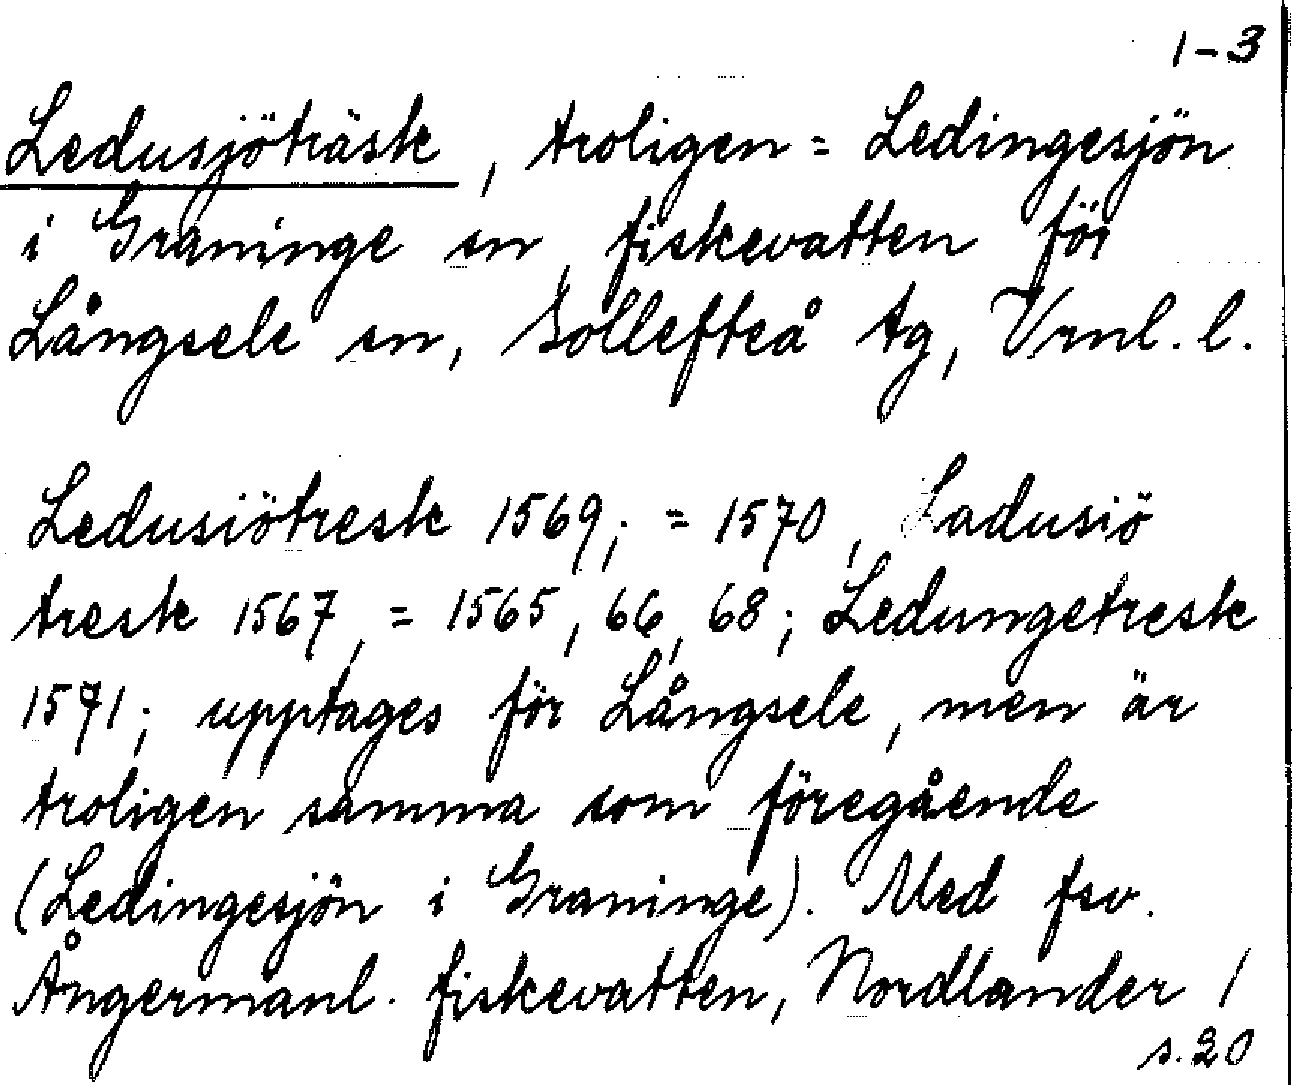 1-3
Ledusjöträsk, troligen = Ledingesjön
i Graninge sn, fiskevatten för
Långsele sn, Sollefteå tg, Vrnl. l.
Ledusiötresk 1569; = 1570, Ladusiö
tresk 1567, = 1565, 66, 68; Ledungetresk
1571; upptages för Långsele, men är
troligen samma som föregående
(Ledingesjön i Graninge). Med fsv.
Ångermanl. fiskevatten, Nordlander 1
s. 20